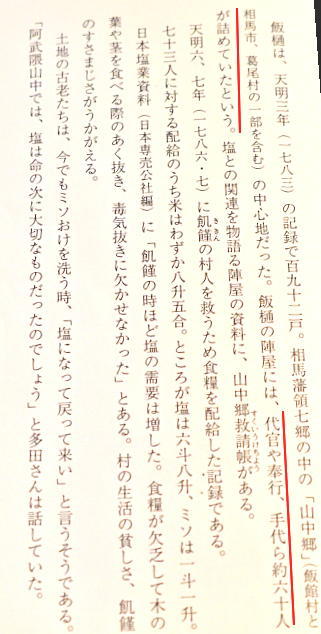 飯樋は、天明三年（一七八三）の記録で百九十二戸。相馬藩領七郷の中の「山中郷」（飯館村と
相馬市、葛尾村の一部を含む）の中心地だった。飯樋の陣屋には、代官や奉行、手代ら約六十人
が詰めていたという。塩との関連を物語る陣屋の資料に、山中郷救請帳がある。
天明六、七年（一七八六・七）に飢饉の村人を救うため食糧を配給した記録である。
七十三人に対する配給のうち米はわずか八升五合。ところが塩は六斗八升、ミソは一斗一升。
日本塩業資料（日本専売公社編）に「飢饉の時ほど塩の需要は増した。食糧が欠乏して木の
葉や茎を食べる際のあく抜き、毒気抜きに欠かせなかった」とある。村の生活の貧しさ、飢饉
のすさまじさがうかがえる。
土地の古老たちは、今でもミソおけを洗う時、「塩になって戻って来い」と言うそうである。
「阿武隈山中では、塩は命の次に大切なものだったのでしょう」と多田さんは話していた。